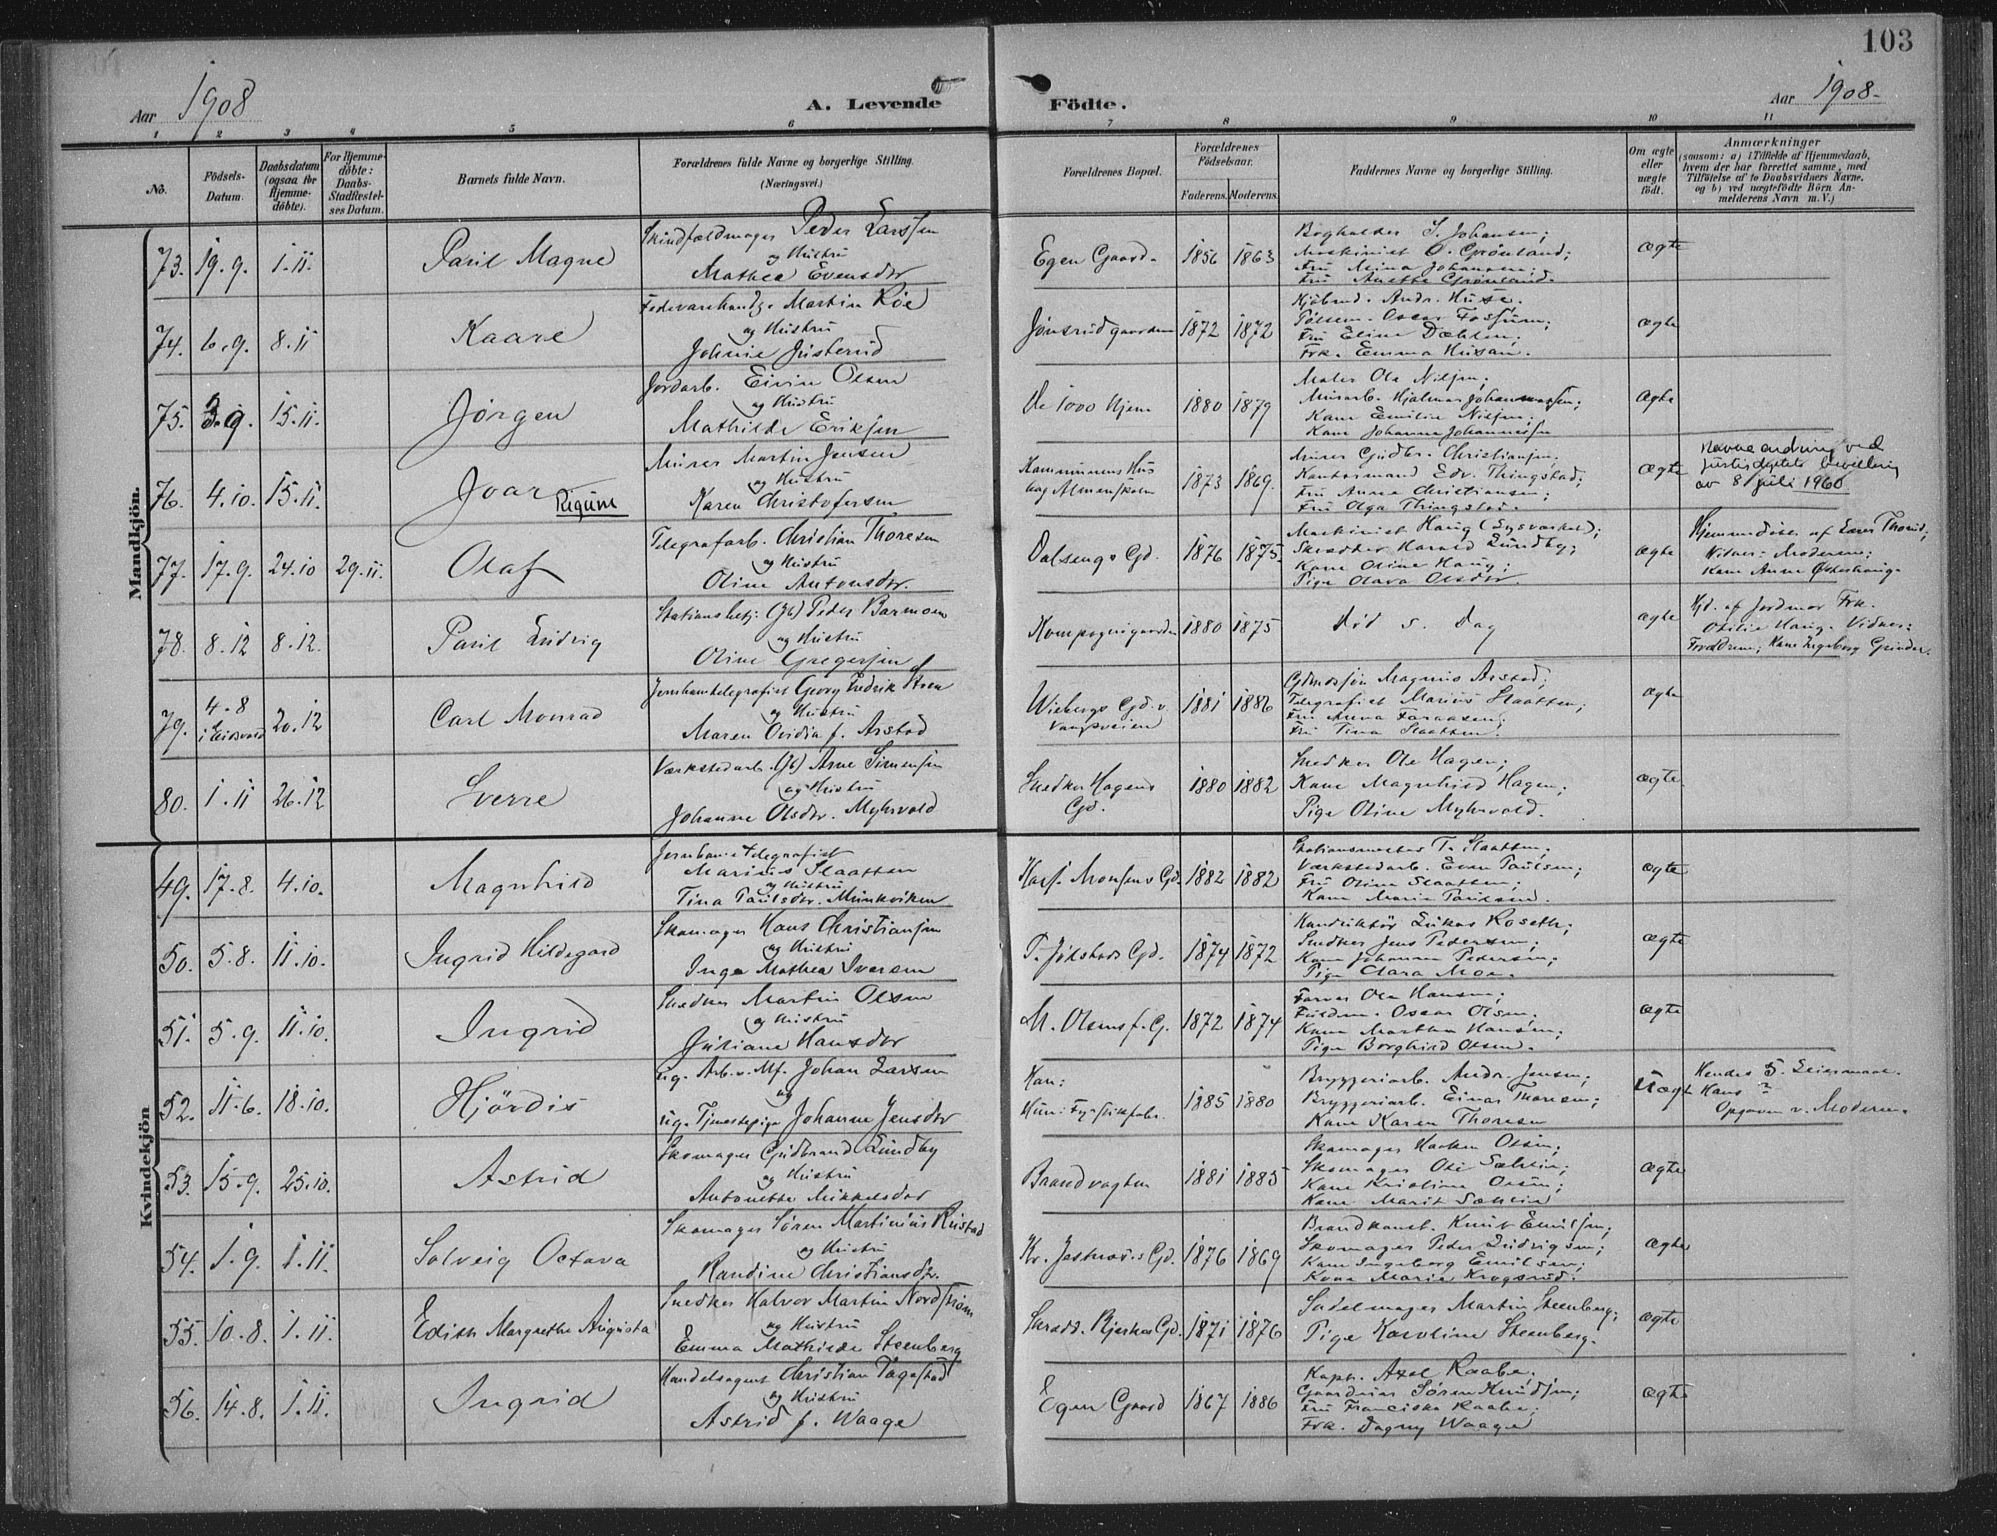 103
Aar 1908
A. Levende Födte.
Aar 1908-
1 2 3 4 5 6 7 8 9 10 11
No.
Födsels-Datum.
Daabsdatum (ogsaa for Hjemme-döbte).
For Hjemme-döbte: Daabs-Stadfestel-ses Datum.
Barnets fulde Navn.
Forældrenes fulde Navne og borgerlige Stilling. (Næringsvei.)
Forældrenes Bopæl.
Forældrenes Födselsaar.
Faderens. Moderens.
Faddernes Navne og borgerlige Stilling.
Om ægte eller uægte födt.
Anmærkninger
(saasom: a) i Tilfælde af Hjemmedaab, hvem der har forrettet samme, med Tilföielse af to Daabsvidners Navne, og b) ved uægtefödte Börn Anmelderens Navn m. V.)
Mandkjön.
73. 19.9. 1.11. Paul Magne
Skindfældmager Peder Larssen
og Hustru
Mathea Evensdtr
Egen Gaard. 1856 1863
S. Johansen;
Maskinist O. Grønland;
Fru Mina Johansen;
Fru Anette Grønland.
ægte
74. 6.9. 8.11 Kaare
Fedevarehandl. Martin Röe
og Hustru
Johnie Justerud
Jønsrudgaarden 1872 1872
Kjøbmd. Andr. Huse.
Oscar Fossum;
Fru Eline Dæhlen;
Frk. Emma Husan.
ægte
75. 3.9. 15.11. Jörgen
Jordarb. Eivin Olsen
og Hustru
Mathilde Eriksen
De 1000 Hjem 1880 1879
Maler Ole Nilsen;
Murarb. Hjalmar Johannessen;
Kone Emilie Nilsen.
Kone Johanne Johannessen
ægte
76. 4.10. 15.11. Ivar Rigum
Murer Martin Jensen
og Hustru
Karen Christofersen
Kommunens Hus
bag Almenskolen 1873 1869.
Murer Gudbr. Christiansen.
Kontormand Edv. Thingstad;
Fru Anna Christiansen;
Fru Olga Thingstad.
ægte
Navneendring ved
justisdeptets bevilling
av 8 juli 1960
77. 17.9. 24.10 29.11. Olaf
Telegrafarb. Christian Thoresen
og Hustru
Oline Antonsdtr.
Dalsengs Gd. 1876 1875.
Maskinist Haug (Lysverket);
Skrædder Harald Lundby;
Kone Oline Haug;
Pige Olava Olsdtr.
ægte
Hjemmedöbt af
Vidner: Moderen;
Kone Anne Østeshaug.
78. 8.12 8.12. Paul Ludvig
Stationsbetj. (Jb) Peder Barmoen
og Hustru
Oline Gregersen
Kompagnigaarden 1880 1875
död s. Dag
ægte
Hjd. af Jordmor Frk.
Otilie Haug. Vidner:
Forældrene; Kone Ingeborg Grinder.
79. 4.8 i Eidsvold 20.12 Carl Monrad
Jernbanetelegrafist Georg Fredrik
og Hustru
Maren Ovidia f. Arstad
Wiebergs Gd. v.
Vangsveien 1881 1886
Magnus Arstad;
Telegrafist Marius Slaatten;
Fru Anna Faraasen;
Fru Tina Slaatten.
ægte
80. 1.11 26.12 Sverre
Værkstedarb. (Jb) Arne Simensen
og Hustru
Johanne Olsdtr. Myhrvold
Snedker Hagens
Gd. 1880 1882
Snedker Ole Hagen;
Kone Magnhild Hagen;
Pige Oline Myhrvold.
ægte.
Kvindekjön
49. 17.8. 4.10. Magnhild
Jernbanetelegrafist
Marius Slaatten
og Hustru
Tina Paulsdtr. Munkviken
Monsens Gd. 1882 1882
Stationsmester T. Slaatten;
Værkstedarb. Even Paulsen;
Fru Oline Slaatten;
Kone Marie Paulsen.
ægte
50. 5.8. 11.10. Ingrid Hildegard
Skomager Hans Christiansen
og Hustru
Inga Mathea Iversen
T. Jølstads Gd. 1874 1872
Konduktør Lukas Roseth;
Snedker Jens Pedersen;
Kone Johanne Pedersen;
Pige Clara Moe.
ægte
51. 5.9. 11.10. Ingrid
Snedker Martin Olsen
og Hustru
Juliane Hansdtr
M. Olsens f. G. 1872 1874
Farver Ole Hansen;
Fuldm. Oscar Olsen.
Kone Marthea Hansen;
Pige Borghild Olsen.
ægte
52. 11.6. 18.10. Hjördis
ug. Arb. v. Mf. Johan Larsen
og
ug. Tjenestepige Johanne Jensdtr
Han:
Hun: Fyrstikfabr. 1885 1880
Bryggeriarb. Andr. Jensen;
Bryggeriarb. Einar Thoresen;
Kone Karen Thoresen
Uægte
Hendes 5. Leiermaal.
Hans ?
Opgaven v. Moderen.
53. 15.9. 25.10. Astrid
Skomager Gudbrand Lundby
og Hustru
Antonette Mikkelsdtr
Brandvagten 1881 1885
Skomager Haaken Olsen;
Skomager Ole Sæhlie;
Kone Kristine Olsen;
Kone Marit Sæhlie
ægte
54. 1.9. 1.11. Solveig Octava
Skomager Søren Martinius Rustad
og Hustru
Randine Christiansdtr.
Kr. Jestnæs's Gd. 1876 1869
Brandkonst. Knut Emilsen;
Skomager Peder Ludvigsen;
Kone Ingeborg Emilsen;
Kone Marie Krogsrud.
ægte
55. 10.8. 1.11. Edith Margrethe Augusta
Snedker Halvor Martin Nordstrøm
og Hustru
Emma Mathilde Steenberg
Skræd. Bjerkes Gd. 1871 1876
Sadelmager Martin Steenberg;
Pige Karoline Steenberg.
ægte
56. 14.8. 1.11. Ingrid
Handelsagent Christian Tagestad
og Hustru
Astrid f. Waage
Egen Gaard 1867 1886
Kapt. Axel Raabe;
Søren Knudsen;
Fru Franciska Raabe;
Frk. Dagny Waage
ægte